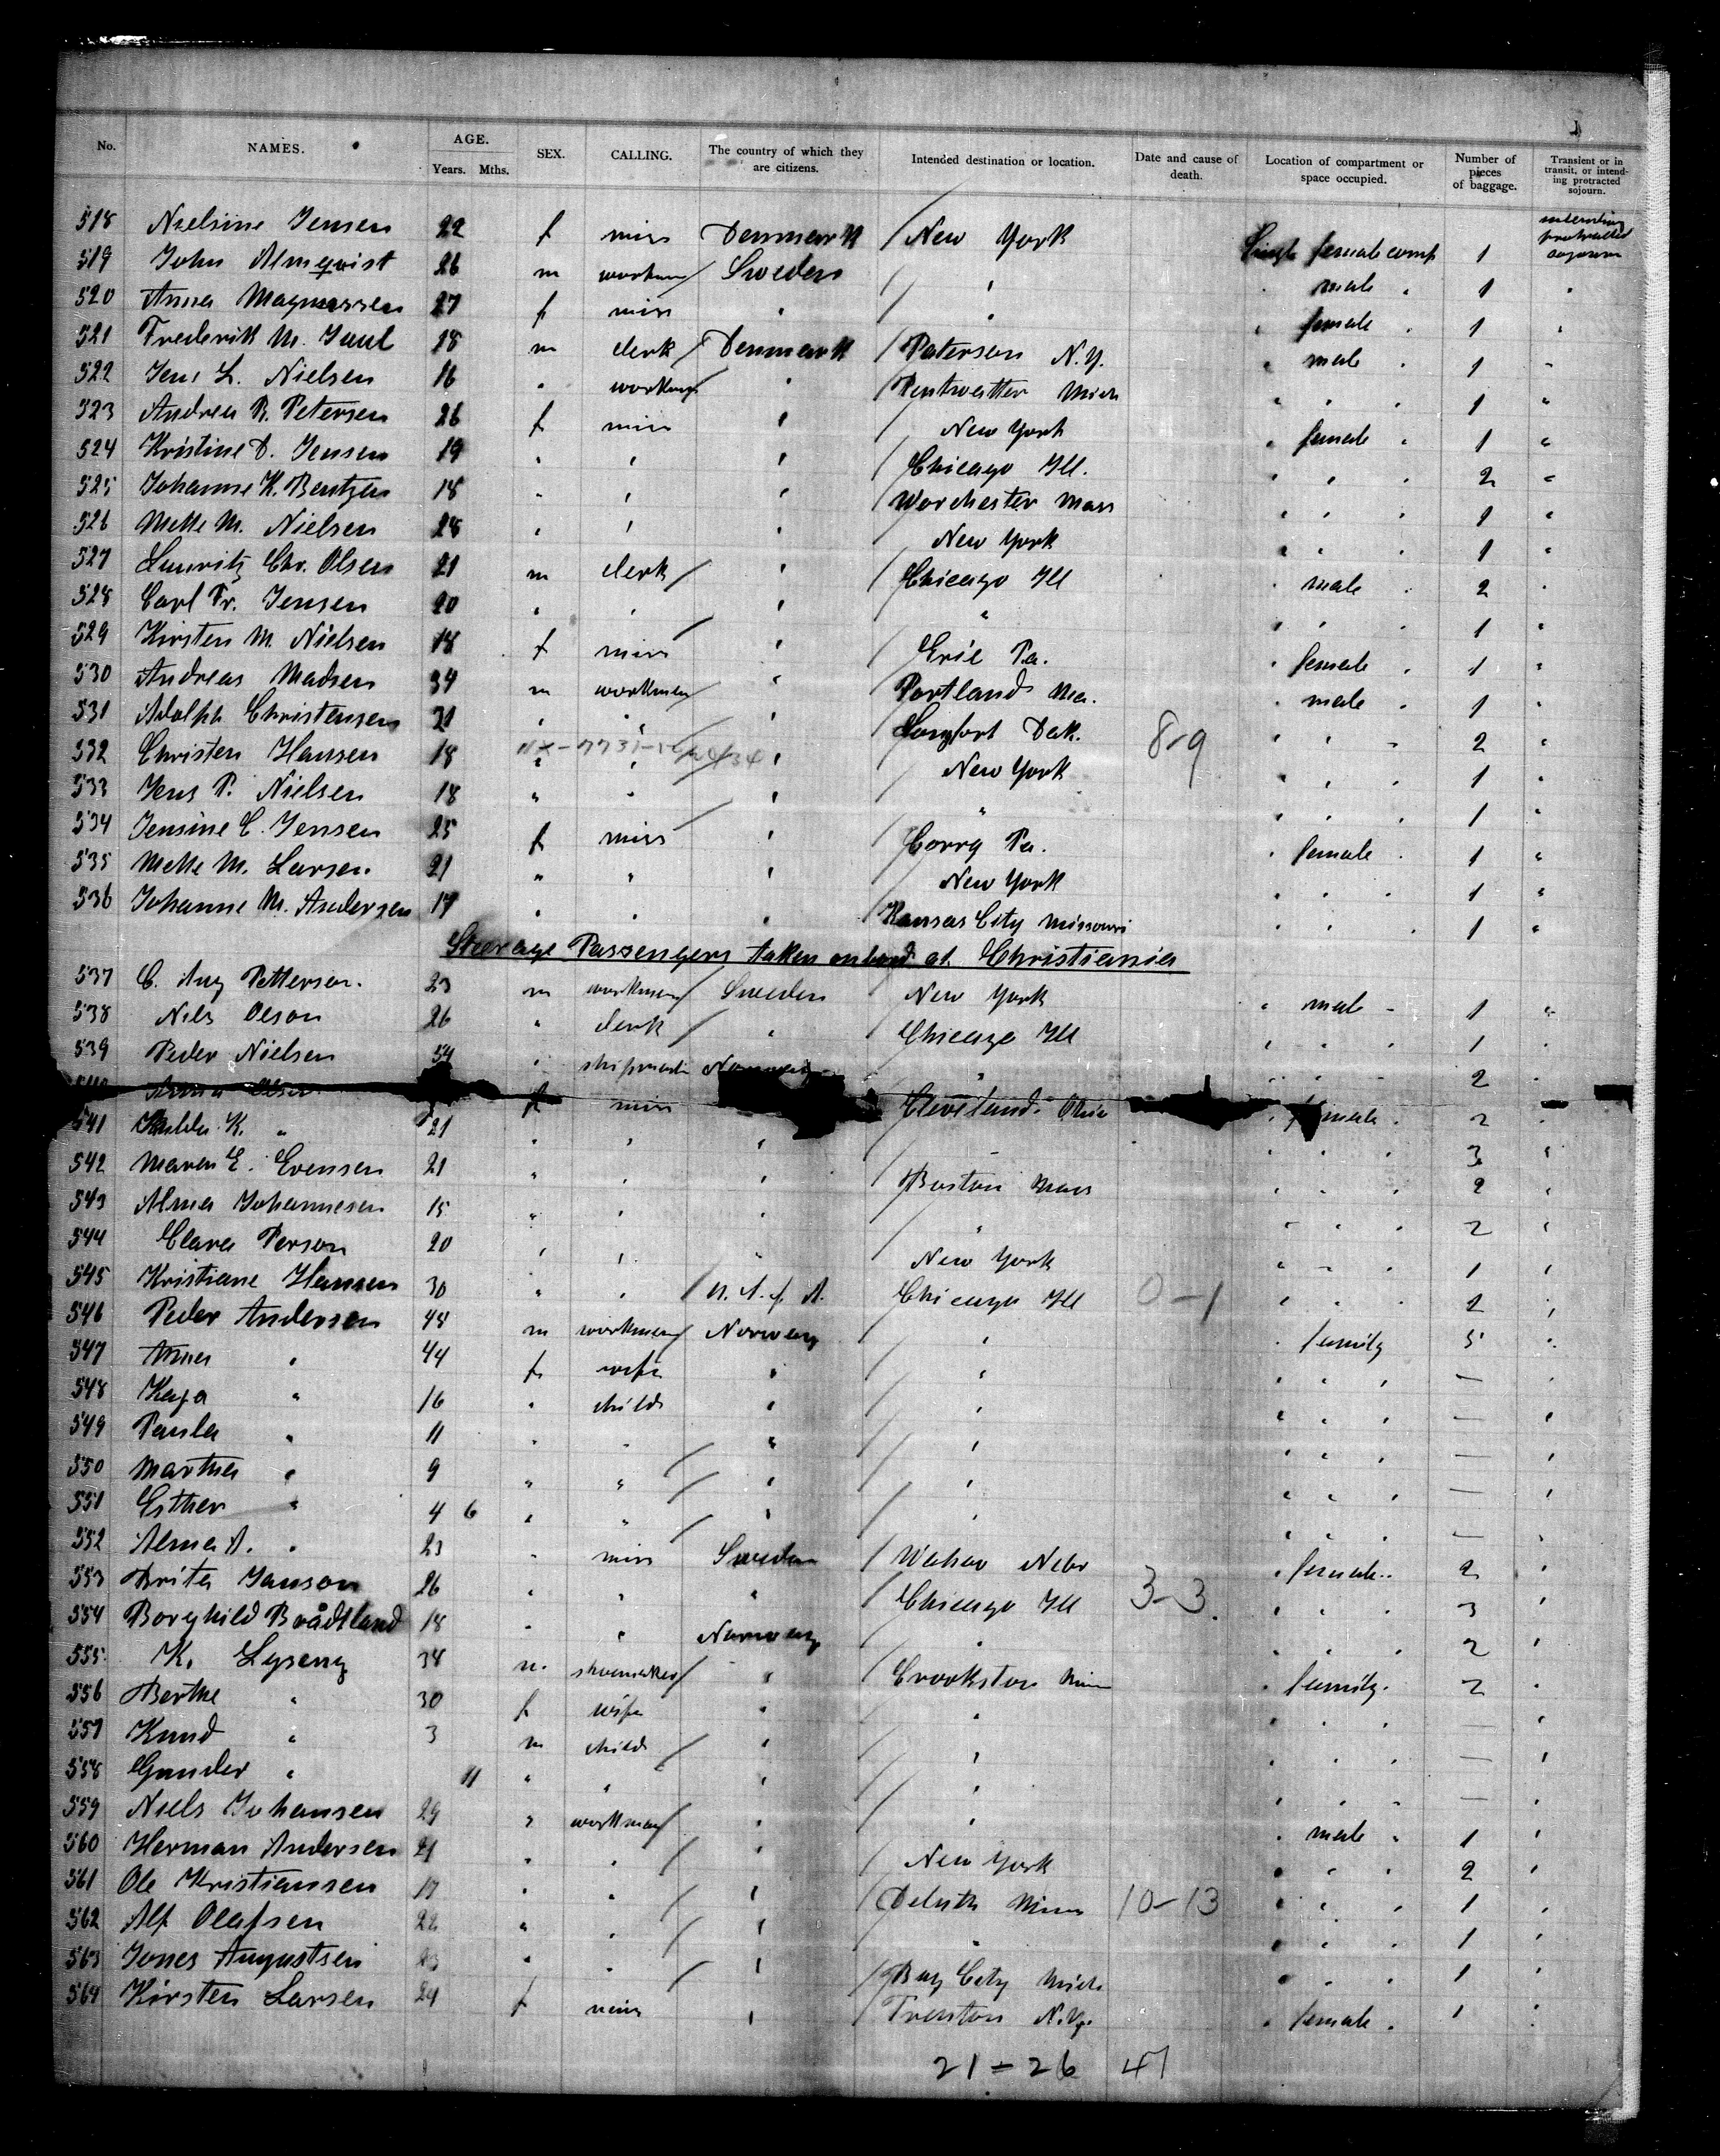 No. NAMES. AGE. Years. Mths. SEX. CALLING. The country of which they are citizens. Intended destination or location. Date and cause of death. Location of compartment or space occupied. Number of pieces of baggage. Transient or in transit, or intending protracted sojourn.
518 Nielsine Jensen 22 f miss Denmark / New York Single female comp 1 intending protracted sojourn
519 John Almqvist 26 m workman / Sweden / " " male " 1 "
520 Anna Magnussen 27 f miss " / " " female " 1 "
521 Frederik M. Juul 18 m clerk / Denmark / Paterson N.Y. " male " 1 "
522 Jens L. Nielsen 16 " workman / " / Pentwatter Mich " " " 1 "
523 Andrea R. Petersen 26 f miss " / New York " female " 1 "
524 Kristine D. Jensen 19 " " " / Chicago Ill. " " " 2 "
525 Johanne K. Bentzen 18 " " " / Worchester Mass " " " 1 "
526 Mette M. Nielsen 28 " " " New York " " " 1 "
527 Lauritz Chr. Olsen 21 m clerk / " / Chicago Ill " male " 2 "
528 Carl Fr. Jensen 20 " " / " " " " " 1 "
529 Kirsten M. Nielsen 18 f miss " / Erie Pa. " female " 1 "
530 Andreas Madsen 34 m workman / " Portland Ma. " male " 1 "
531 Adolph Christensen 31 " " " Comfort Dak. 8-9 " " " 2 "
532 Christen Hansen 18 " " / " / New York " " " 1 "
533 Jens P. Nielsen 18 " " / " " " " " 1 "
534 Jensine C. Jensen 25 f miss " / Corry Pa. " female " 1 "
535 Mette M. Larsen 21 " " " New York " " " 1 "
536 Johanne M. Andersen 17 " " " Kansas City Missouri " " " 1 "
Steerage Passengers taken onboard at Christiania
537 C. Aug Petterson 23 m workman / Sweden / New York " male " 1 "
538 Nils Olson 26 " clerk / " / Chicago Ill " " " 1 "
539 Peder Nielsen 54 " Norway " " " " 2 "
Anna Olsen f miss Cleveland Ohio " female " 2 "
541 K. " 21 " " " " " " 3 "
542 Maren E. Evensen 21 " " " / Boston Mass " " " 2 "
543 Alma Johannesen 15 " " " / " " " " 2 "
544 Clara Person 20 " " " / New York " " " 1 "
545 Kristiane Hansen 30 " " / U.S.f.A. Chicago Ill 0-1 " " " 2 "
546 Peder Andersen 48 m workman / Norway / " " family 5 "
547 Anna " 44 f wife " / " " " " — "
548 Kaja " 16 " child " / " " " " — "
549 Paula " 11 " " " / " " " " — "
550 Martha " 9 " " / " / " " " " — "
551 Esther " 4 6 " " / " / " " " " — "
552 Alma A. " 23 " miss Sweden / Wahoo Nebr " female " 2 "
553 Brita Janson 26 " " " / Chicago Ill 3-3. " " " 3 "
554 Borghild Brådtland 18 " " Norway / " " " " 2 "
555 K. Lyseng 34 m. shoemaker / " / Crookston Minn " family. 2 "
556 Berthe " 30 f wife " / " " " " — "
557 Knud " 3 m child / " / " " " " — "
558 Gunder " 11 " " / " / " " " " — "
559 Niels Johansen 29 " workman / " / " " male " 1 "
560 Herman Andersen 21 " " / " / New York " " " 2 "
561 Ole Kristiansen 17 " " / " / Deluth Minn 10-13 " " " 1 "
562 Alf Olafsen 22 " " / " / " " " " 1 "
563 Jones Augustsen 23 " " / " / Bay City Mich " " " 1 "
564 Kirsten Larsen 24 f miss " / Trenton N.Y. " female " 1 "
21 = 26 47